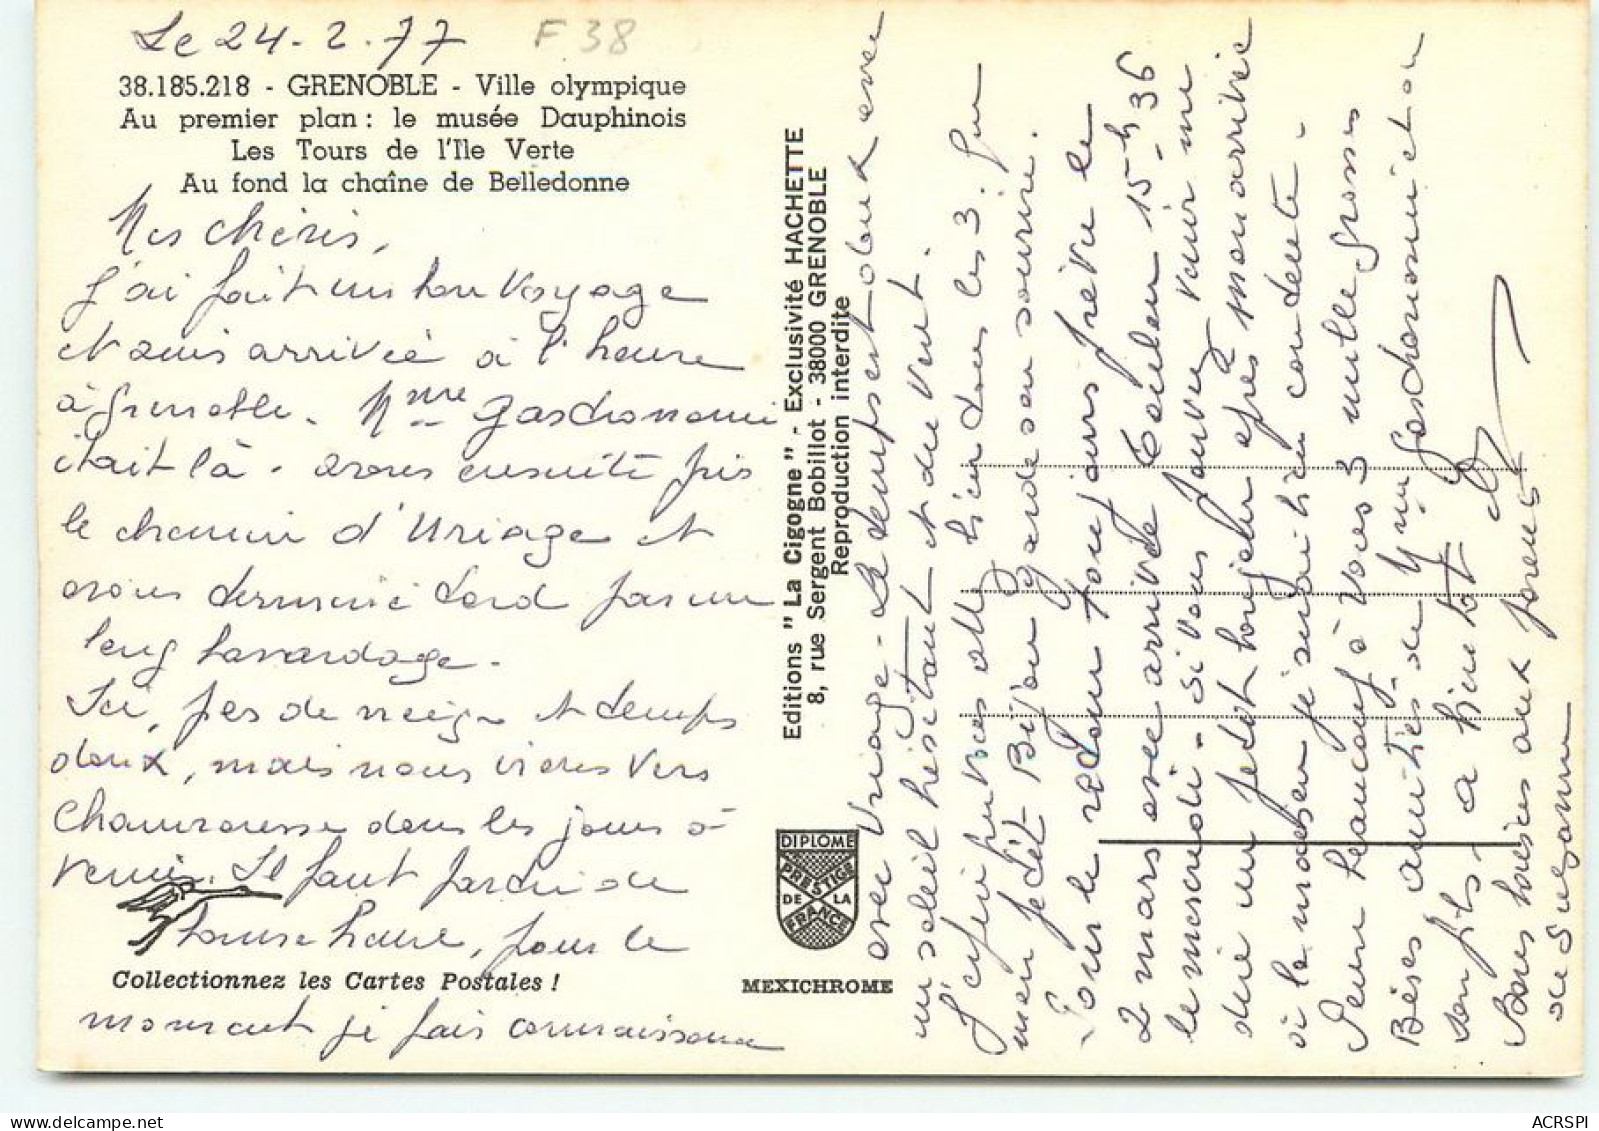 Le 24-2-77 F38
38.185.218 - GRENOBLE - Ville olympique
Au premier plan : le musée Dauphinois
Les Tours de l'Ile Verte
Au fond la chaîne de Belledonne
Mes chéris,
J'ai fait un bon voyage
et suis arrivée à l'heure
à Grenoble. Mme Gastronomi
était là - avons ensuite pris
le chemin d'Uriage et
avons terminé tard par un
long bavardage -
Ici, pas de neige et temps
doux, mais nous irons vers
Chamrousse dans les jours à
venir. Il faut partir de
bonne heure, pour le
Collectionnez les Cartes Postales !
moment je fais connaissance
Editions "La Cigogne" - Exclusivité HACHETTE
8, rue Sergent Bobillot - 38000 GRENOBLE
Reproduction interdite
DIPLOME
PRESTIGE
DE LA
FRANCE
MEXICHROME
avec Uriage - Le temps est doux avec
un soleil hésitant et du vent.
J'espère que vous allez bien tous les 3. Que
mon petit Bijou garde son sourire.
Pour le retour toujours prévu le
2 mars avec arrivée Toulon 15h36
le mercredi - si vous pouvez venir me
dire un petit bonjour après mon arrivée
à la maison je serai bien contente -
Merci beaucoup à vous 3 mille grosses
Bises amitiés de Mme Gastronomi et son
son fils - à bientôt
Bons baisers aux parents
de Suzanne